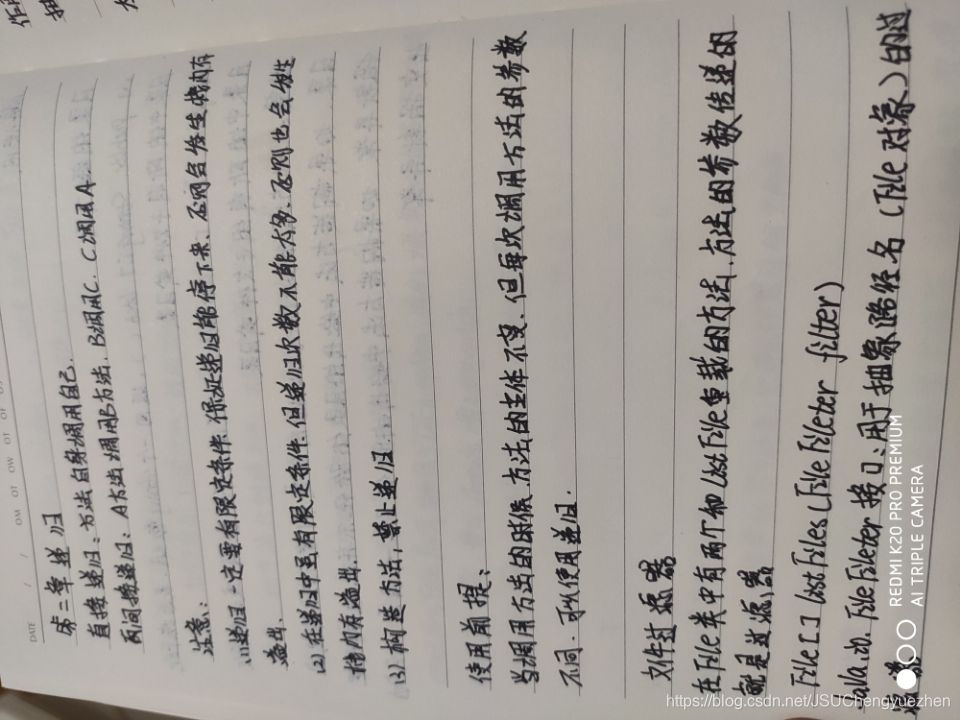 DATE / /
第二章 递归
直接递归：方法自身调用自己.
间接递归：A方法调用B方法. B调用C. C调用A.
注意：
(1)递归一定要有限定条件. 保证递归能停下来、否则会发生栈内存
溢出.
(2) 在递归中虽有限定条件. 但递归次数不能太多. 否则也会发生
栈内存溢出.
(3) 构造方法，禁止递归
使用前提：
当调用方法的时候. 方法的主体不变、但每次调用方法的参数
不同. 可以使用递归.
文件过滤器
在File类中有两个和ListFile重载的方法、方法的参数传递的
就是过滤器
File[] ListFiles(FileFileter filter)
java.io. FileFileter接口：用于抽象路径名（File对象）的过
滤
REDMI K20 PRO PREMIUM
AI TRIPLE CAMERA
https://blog.csdn.net/JSUChengyuezhen